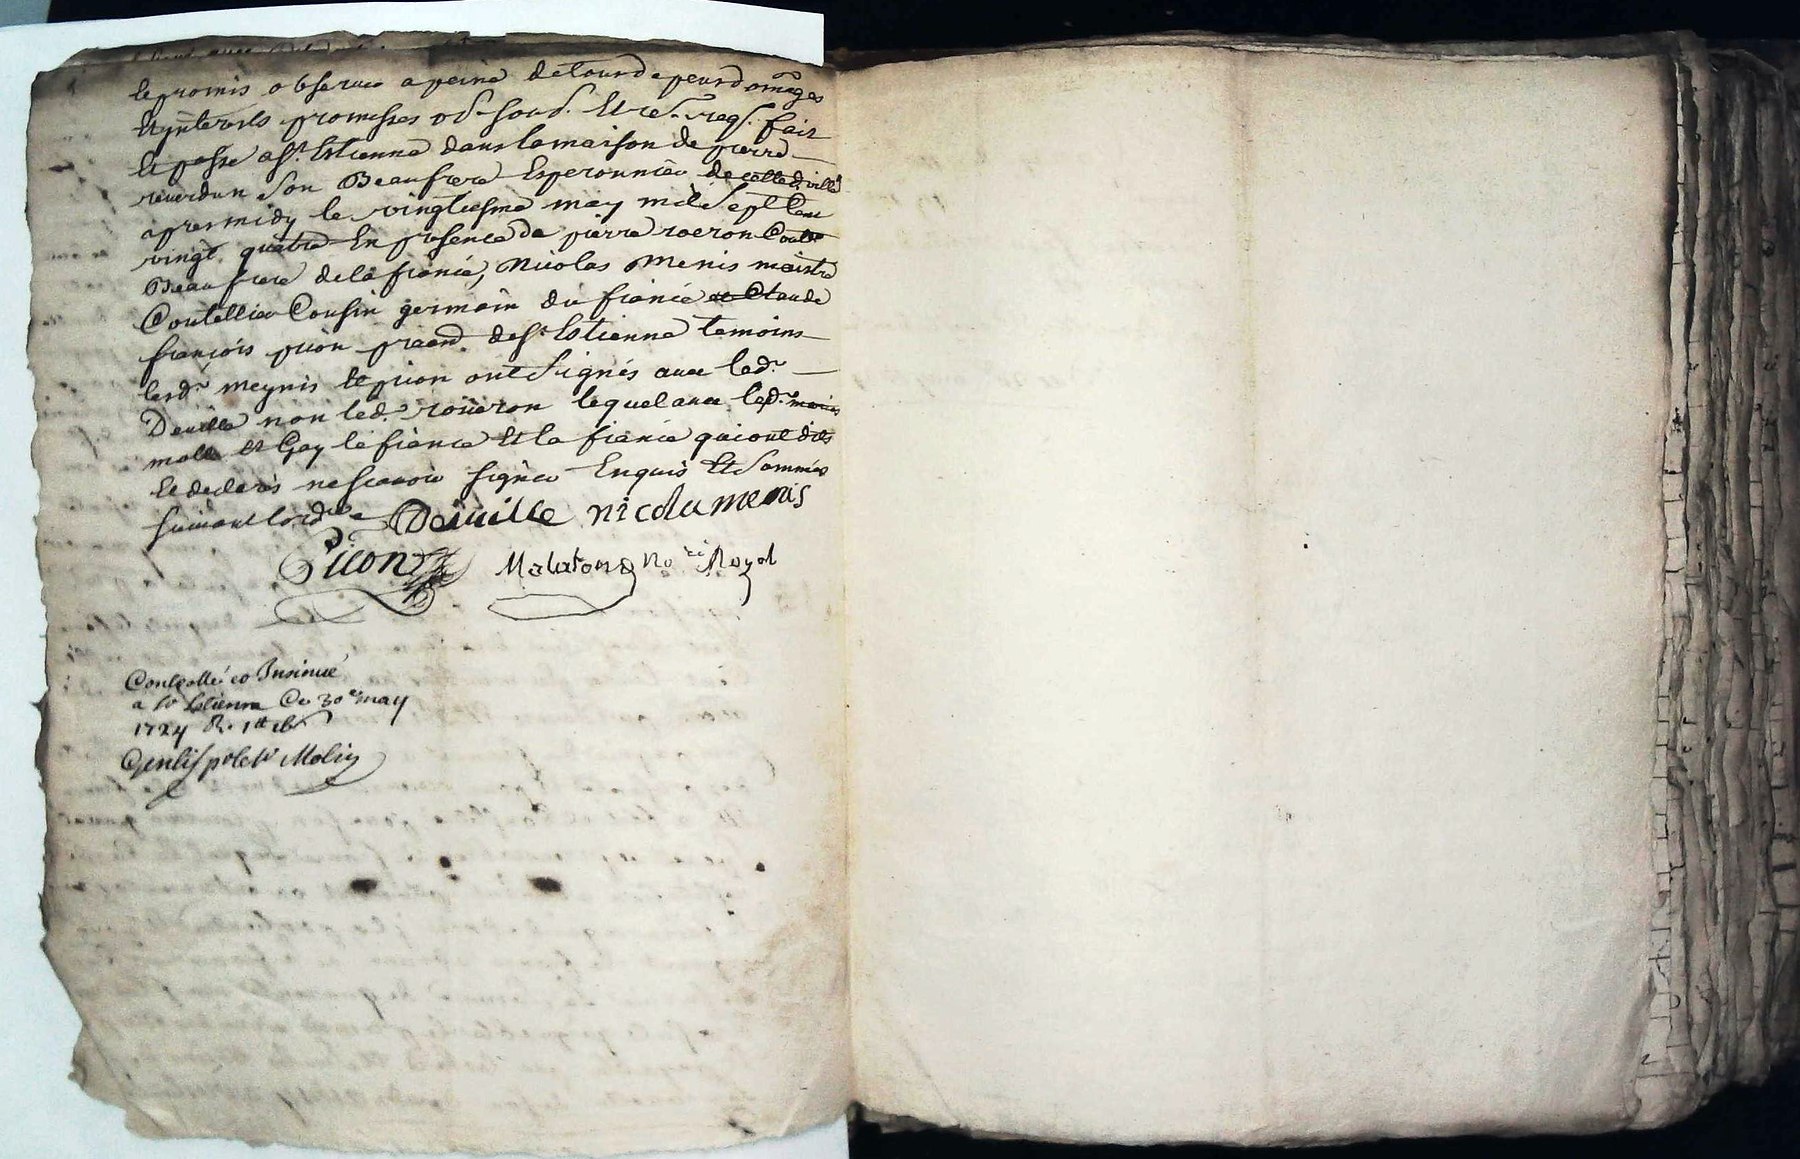 le promis observer a peine de tous depens domages
et ynterets promesses obl. soub. et re. req. fait
et passé a St Estienne dans la maison de pierre
reverdun son Beaufrere Esperonnier
apres midy le vingtiesme may mil sept Cent
vingt quatre En presence de pierre roeron
Beaufrere de la fiancée, Nicolas Menis maistre
Coutellier Cousin germain du fiancé Claude
françois picon praend. de St Estienne temoins
lesd. meynis et picon ont signés avec led.
Deville non led. roueron lequel avec
et Gay le fiancé et la fiancée qui ont dits
et declarés ne scavoir signer Enquis Et sommés
suivant lord.ce Deville nicolu menis
Picon Malaton No.re Royal
Controllé et Insinué
a St Estienne Ce 30e may
1724 R. 1tt